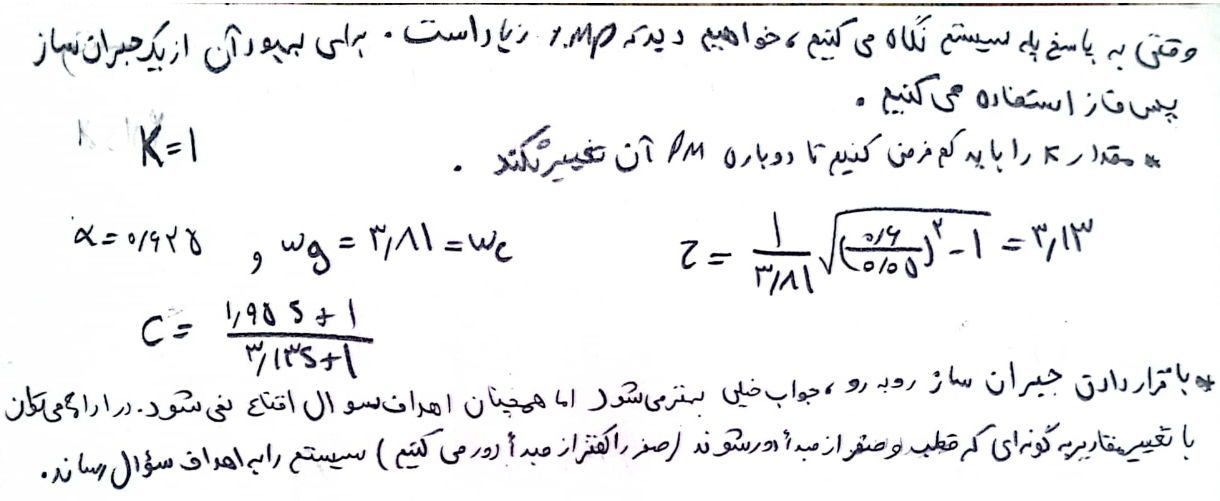 وقتی به پاسخ پله سیستم نگاه می کنیم، خواهیم دید که %MP زیاد است. برای بهبود آن از یک جبران ساز
پس فاز استفاده می کنیم.
* مقدار K را باید کم فرض کنیم تا دوباره PM آن تغییر نکند. K=1
τ = 1/۳٫۸۱ √((۰٫۶/۰٫۰۵)^۲ − 1) = ۳٫۱۳
α = ۰٫۶۲۵ و wg = ۳٫۸۱ = wc
C = (۱٫۹۵ S + 1)/(۳٫۱۳ S + 1)
* با قرار دادن جبران ساز روبه رو، جواب خیلی بهتر می شود اما همچنان اهداف سوال اقناع نمی شود. در ادامه می توان
با تغییر مقادیر به گونه ای که قطب و صفر از مبدأ دور شوند (صفر را کمتر از مبدأ دور می کنیم) سیستم را به اهداف سؤال رساند.